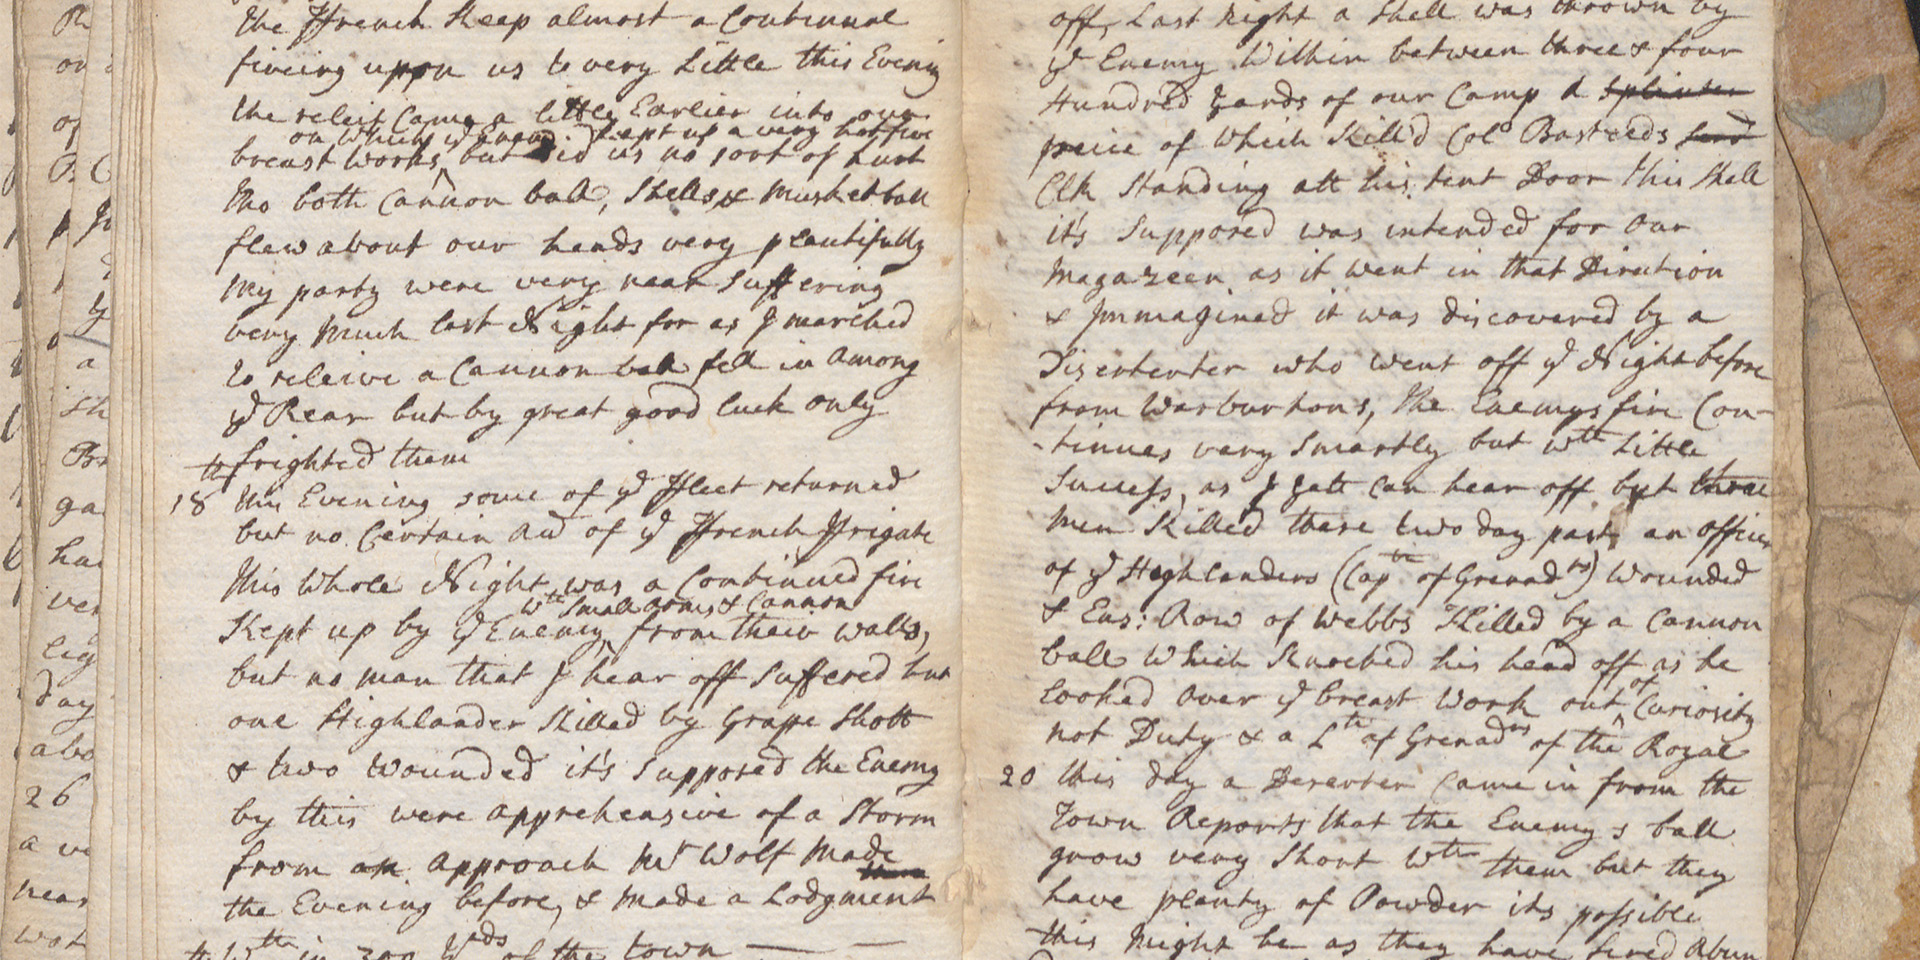 the ffrench Keep almost a Continual
fireing upon us to very Little this Evenig
the releif Came a little Earlier into our
on which ye Enemy kept up a very hot fire
breast works, but did us no sort of hurt
tho both Cannon ball, Shells & Musket ball
flew about our heads very plentifully
My party were very near Suffering
very Much last Night for as I marched
to releive a Cannon ball fell in Among
ye Rear but by great good luck only
frighted them
18th this Evening some of ye ffleet returned
but no Certain Acct of ye ffrench ffrigate
This Whole Night was a Continued fire
wth Small arms & Cannon
Kept up by ye Enemy, from their walls,
but no man that I hear off Suffered but
one Highlander Killed by Grape Shott
& two wounded it's Supposed the Enemy
by this were apprehensive of a Storm
from an approach Mr Wolf Made
the Evening before, & Made a Lodgment
wth in 300 Yds of the town
off, Last Night a Shell was thrown by
ye Enemy Within between three & four
Hundred Yards of our Camp & Splinter
peice of Which Kill'd Colo Basteeds
Clk Standing att his tent Door this Shell
it's Supposed was intended for our
Magazeen as it went in that Direction
& Immagined it was discovered by a
Disenterter who went off ye Night before
from Warburtons, the Enemys fire Con-
tinues very Smartly but wth Little
Success, as I Yett can hear off but three
Men Killed these two day past an officer
of ye Highlanders (Captn of Grenadrs) Wounded
& Ens: Row of Webbs Killed by a Cannon
ball Which Knocked his head off as he
Looked Over ye breast Work out of Curiosity
not Duty & a Ltn of Grenadrs of the Royal
20 this day a Deserter Came in from the
Town Reports that the Enemys ball
grow very Short wth them but they
have plenty of Powder its possible
this Might be as they have fired Abun
26
day